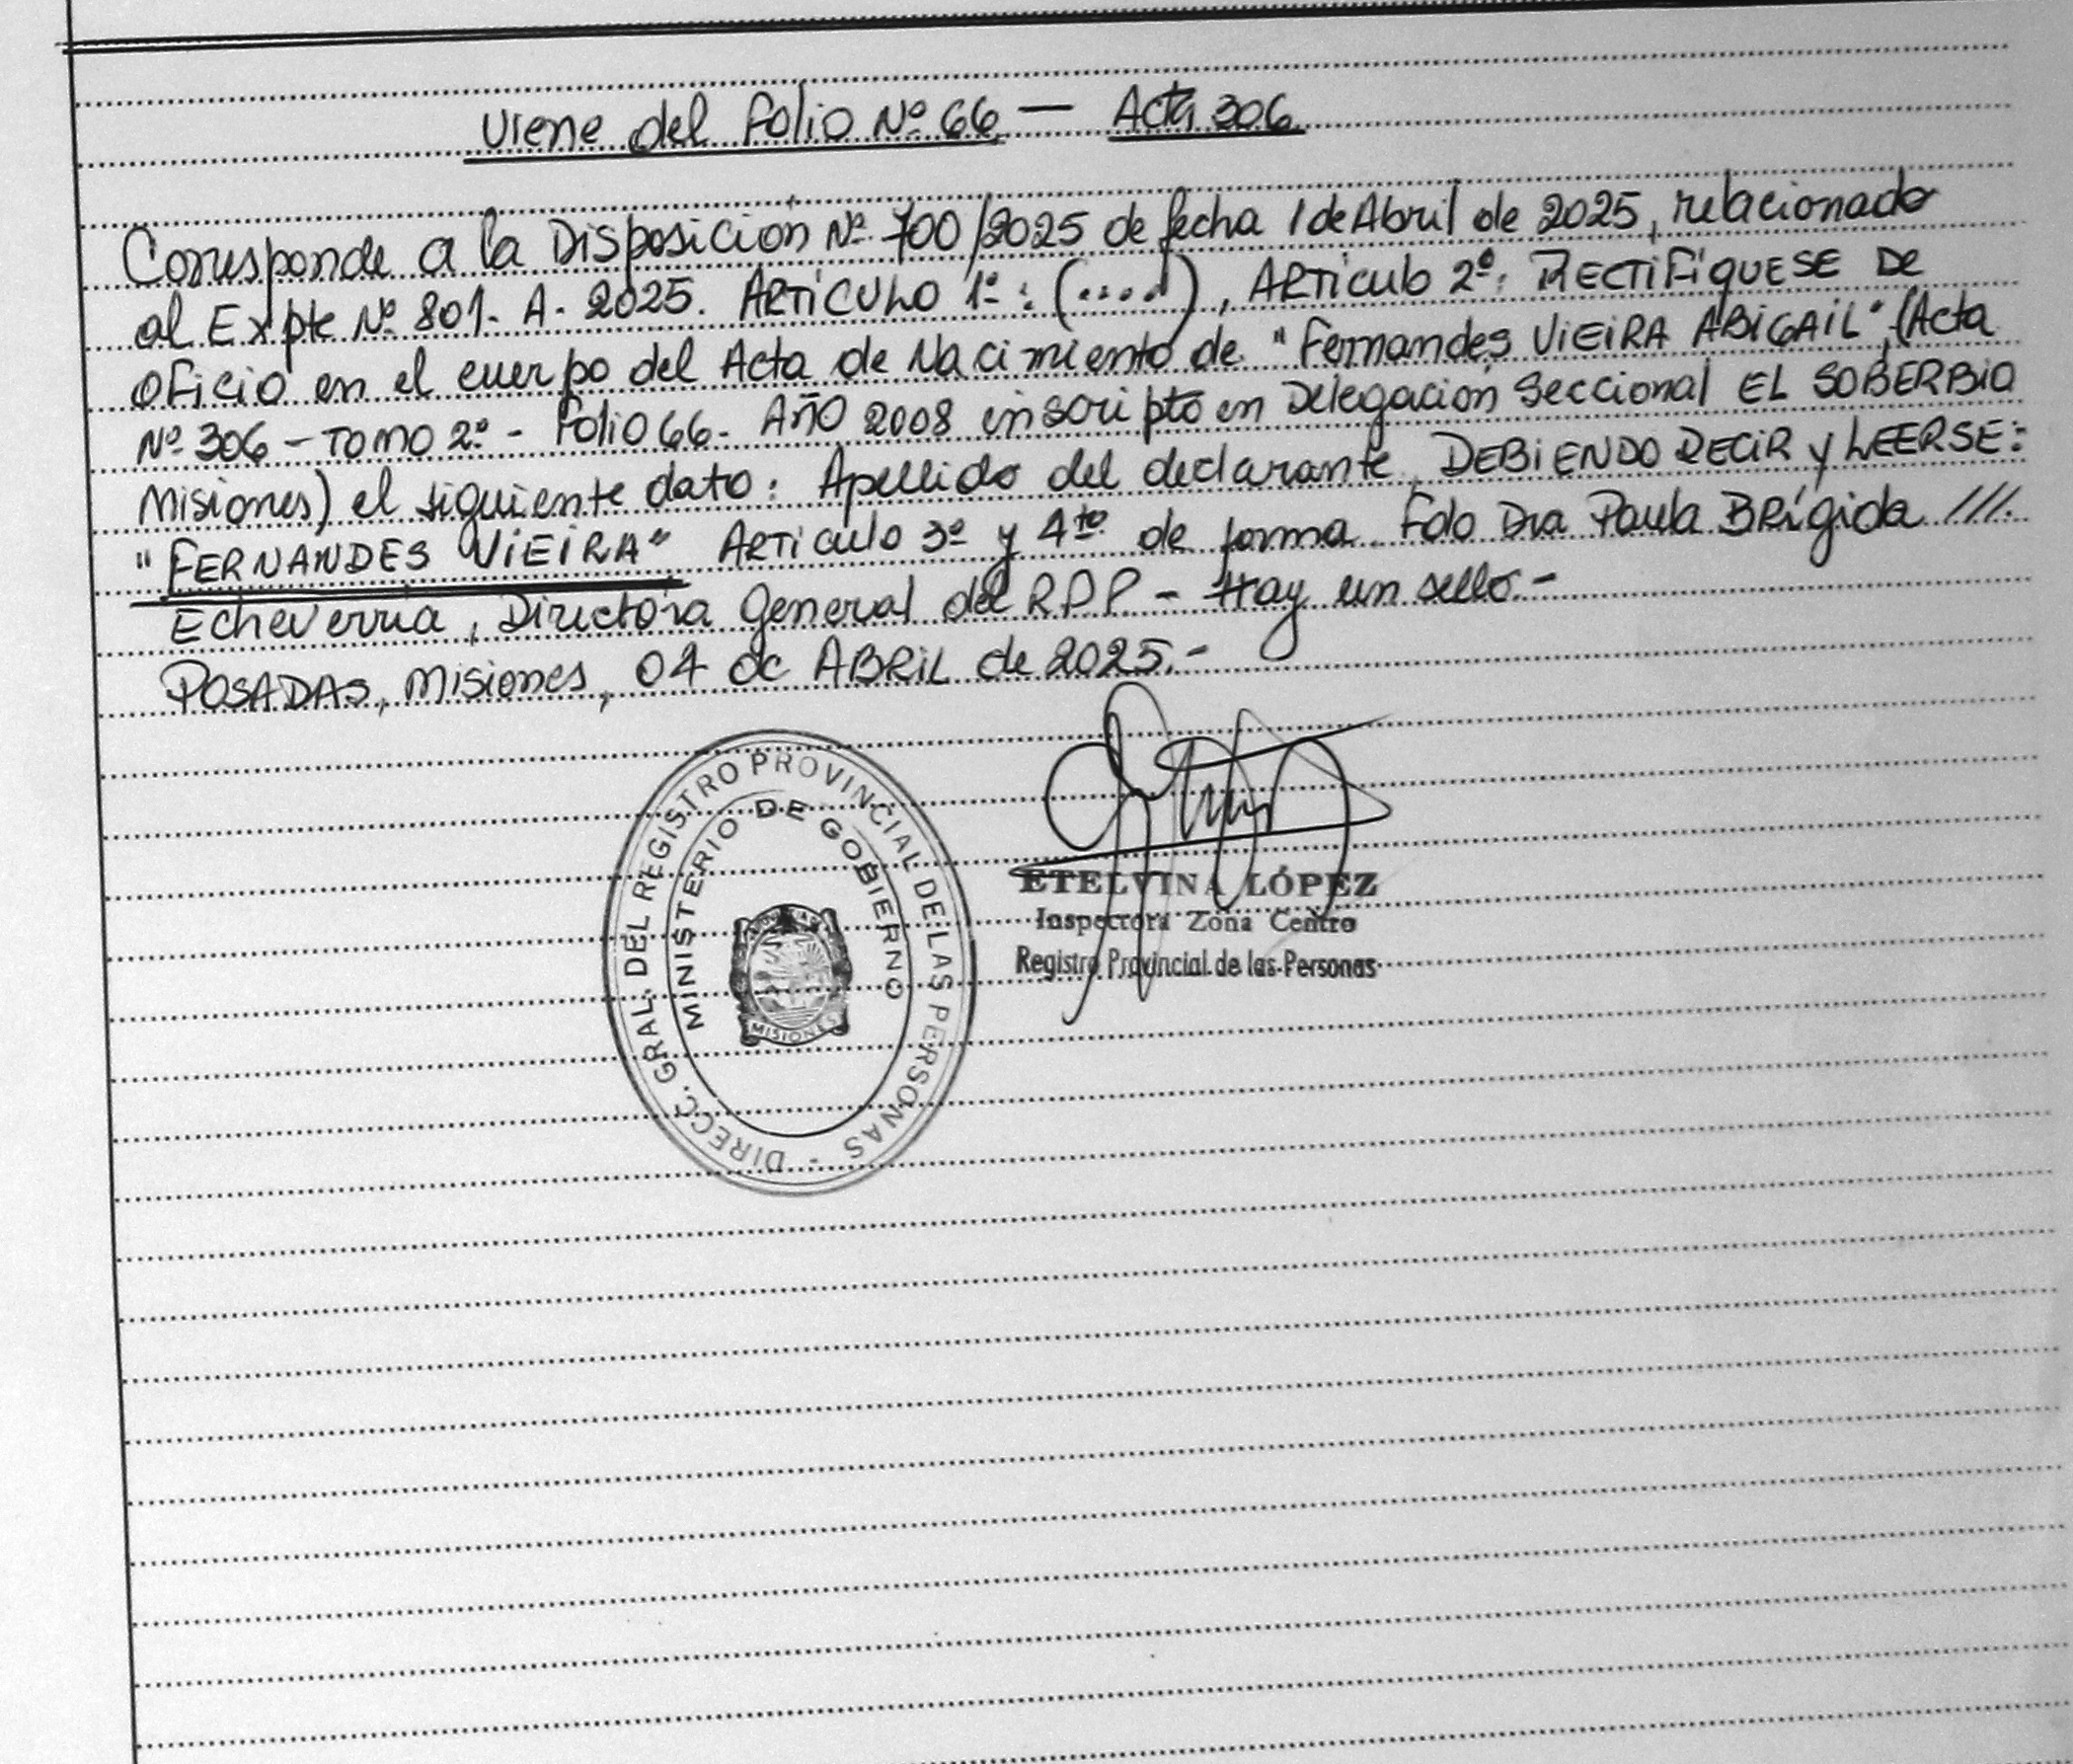 Viene del Folio Nº 66 — Acta 306
Corresponde a la Disposición Nº 700/2025 de fecha 1 de Abril de 2025, relacionado
al Expte Nº 801. A. 2025. ARTÍCULO 1º: (.....), ARTÍCULO 2º: RECTIFÍQUESE DE
OFICIO en el cuerpo del Acta de Nacimiento de "Fernandes VIEIRA ABIGAIL", (Acta
Nº 306 - TOMO 2º - Folio 66 - AÑO 2008 inscripto en Delegación Seccional EL SOBERBIO
Misiones) el siguiente dato: Apellido del declarante, DEBIENDO DECIR y LEERSE:
"FERNANDES VIEIRA" Artículo 3º y 4to de forma. Fdo Dra Paula BRígida ///.
Echeverria, Directora General del RPP - Hay un sello.-
POSADAS, Misiones, 04 de ABRIL de 2025.-
DIRECC. GRAL. DEL REGISTRO PROVINCIAL DE LAS PERSONAS -
MINISTERIO DE GOBIERNO
MISIONES
ETELVINA LÓPEZ
Inspectora Zona Centro
Registro Provincial de las Personas